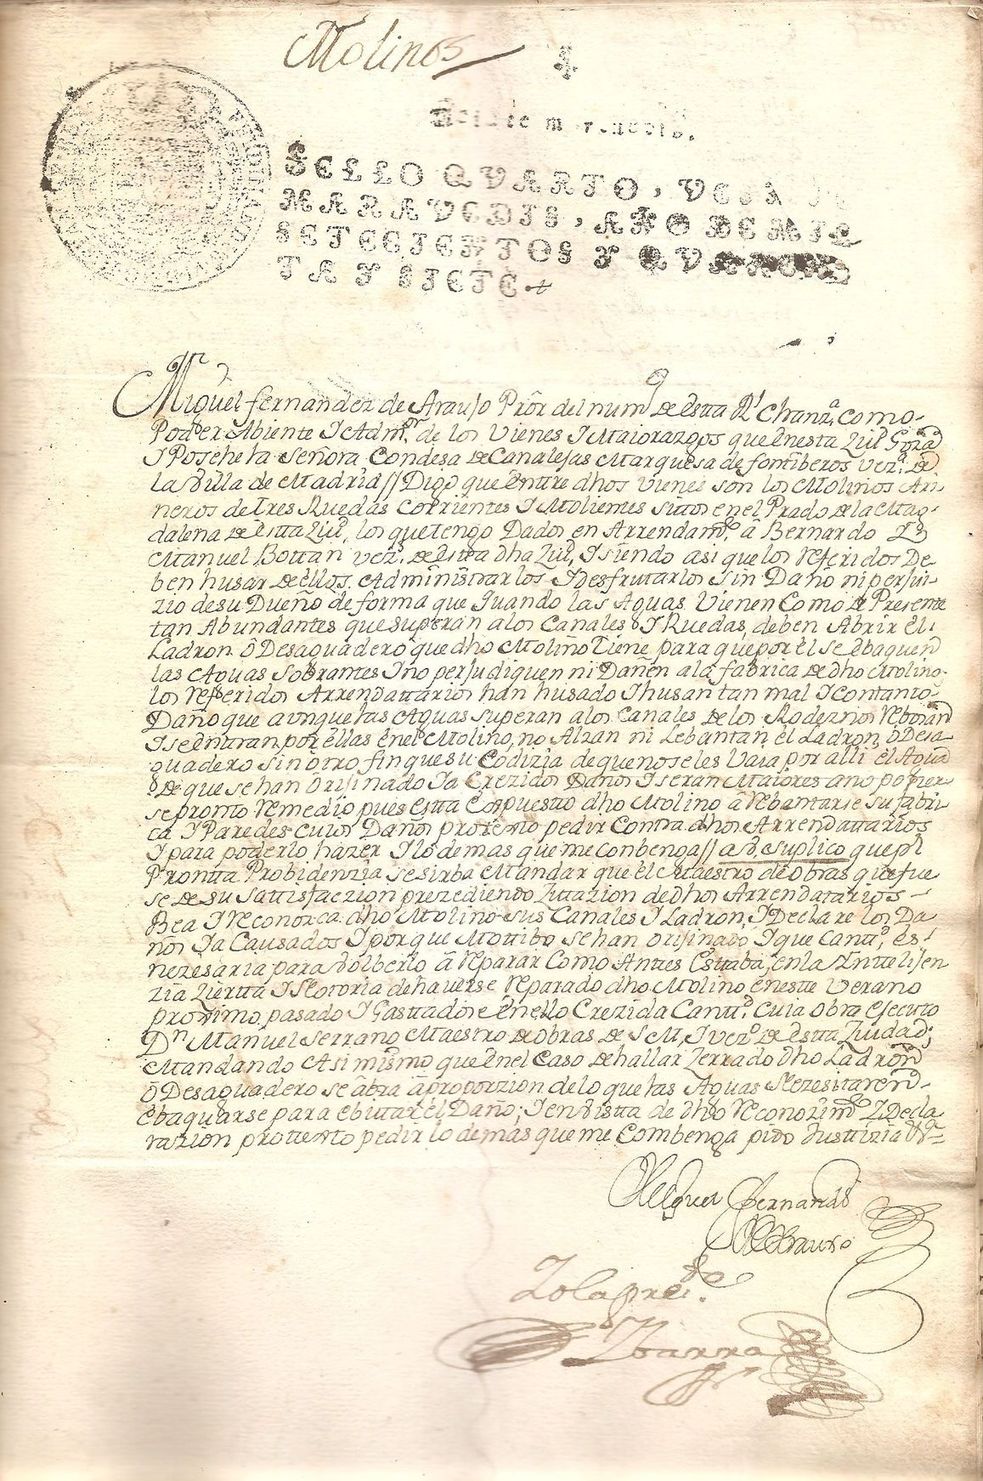 Molinos
SELLO QVARTO, VEINTE
MARAVEDIS, AÑO DE MIL
SETECIENTOS Y QVAREN
TA Y SIETE.
Miguel fernandez de Araujo Pror del num.o de Esta Rl Chanz.a como
Poder Abiente I Adm.or de los Vienes I Maiorazgos que enesta Ziud Grnãd
I Poshehe la Señora Condesa de Canalejas Marquesa de fontiberos vez.a de
la Villa de Madrid // Digo que entre dhos Vienes son los Molinos Ari
neros de tres Ruedas Corrientes I Molientes sittos enel Prado de la Mag-
dalena de Estta Ziud, los que tengo Dados en Arrendam.to â Bernardo
Manuel Bottan vez.o de Estta dha Ziud, I siendo asi que los referidos De
ben husar de Ellos, Administrarlos I Desfrutarlos sin Daño ni perjui-
zio de su Dueño de forma que Quando las Aguas Vienen Como de Presente
tan Abundantes que superan a los Canales I Ruedas, deben Abrir el
Ladron ô Desaguadero que dho Molino Tiene para que por el se Ebaquen
las Aguas Sobrantes I no perjudiquen ni Dañen a la fabrica de dho Molino
los Referidos Arrendattarios han husado I husan tan mal I Contantto
Daño que aunque las Aguas superan a los Canales de los Rodeznos Rebosand
I se Entran por ellas enel Molino, no Alzan ni Lebantan el Ladron, ô Desa
guadero sin otro fin que su Codizia de que no se les Vaia por alli el Agua
de que se han Orijinado Ia Crezidos Daños I seran Maiores a no poner
se pronto Remedio pues Estta Espuesto dho Molino â Rebentarse su fabri
ca I Paredes Cuios Daños protexto pedir Contra dhos Arrendattarios
I para poderlo hazer I lo demas que me Conbenga // a Vd suplico que pr
Prontta Probidenzia se sirba Mandar que el Maestro de Obras que fue
se de su Sattisfaczion prezediendo Zitazion de dhos Arrendatarios
Bea I Reconozca dho Molino sus Canales I Ladron, I Declare los Da
ños Ia Causados I por que Mottibo se han Orijinado I que Cantt.d es
nezesaria para Volberlo â Reparar Como Antes Estaba, en la Intelijen
zia Zierta I Notoria de haverse Reparado dho Molino eneste Verano
proximo pasado I Gasttadose En ello Crezida Cantt.d Cuia Obra Ejecuto
Dn Manuel Serrano Maestro de Obras de S M, I vez.o de Estta Ziudad;
Mandando Asimismo que Enel Caso de hallar Zerrado dho Ladron
ô Desaguadero se abra a proporzion de lo que las Aguas Nezesitaren
Ebaquarse para Ebittar el Daño; I en Vistta de dho Reconozim.to I Decla
razion protexto pedir lo demas que me Combenga pido Justizia &a
Miguel Fernand.z
de Arauxo